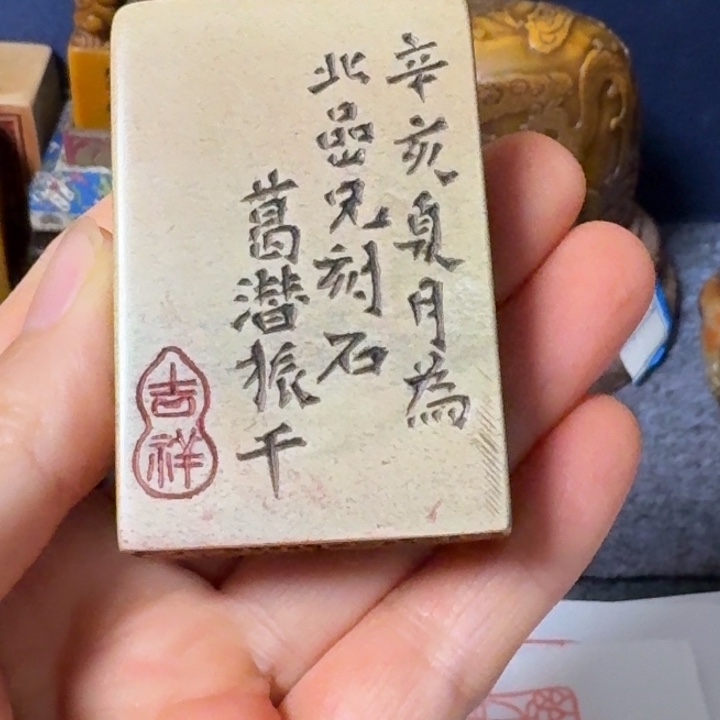 辛亥夏月為
北嵒兄刻石
葛潜振千
吉祥